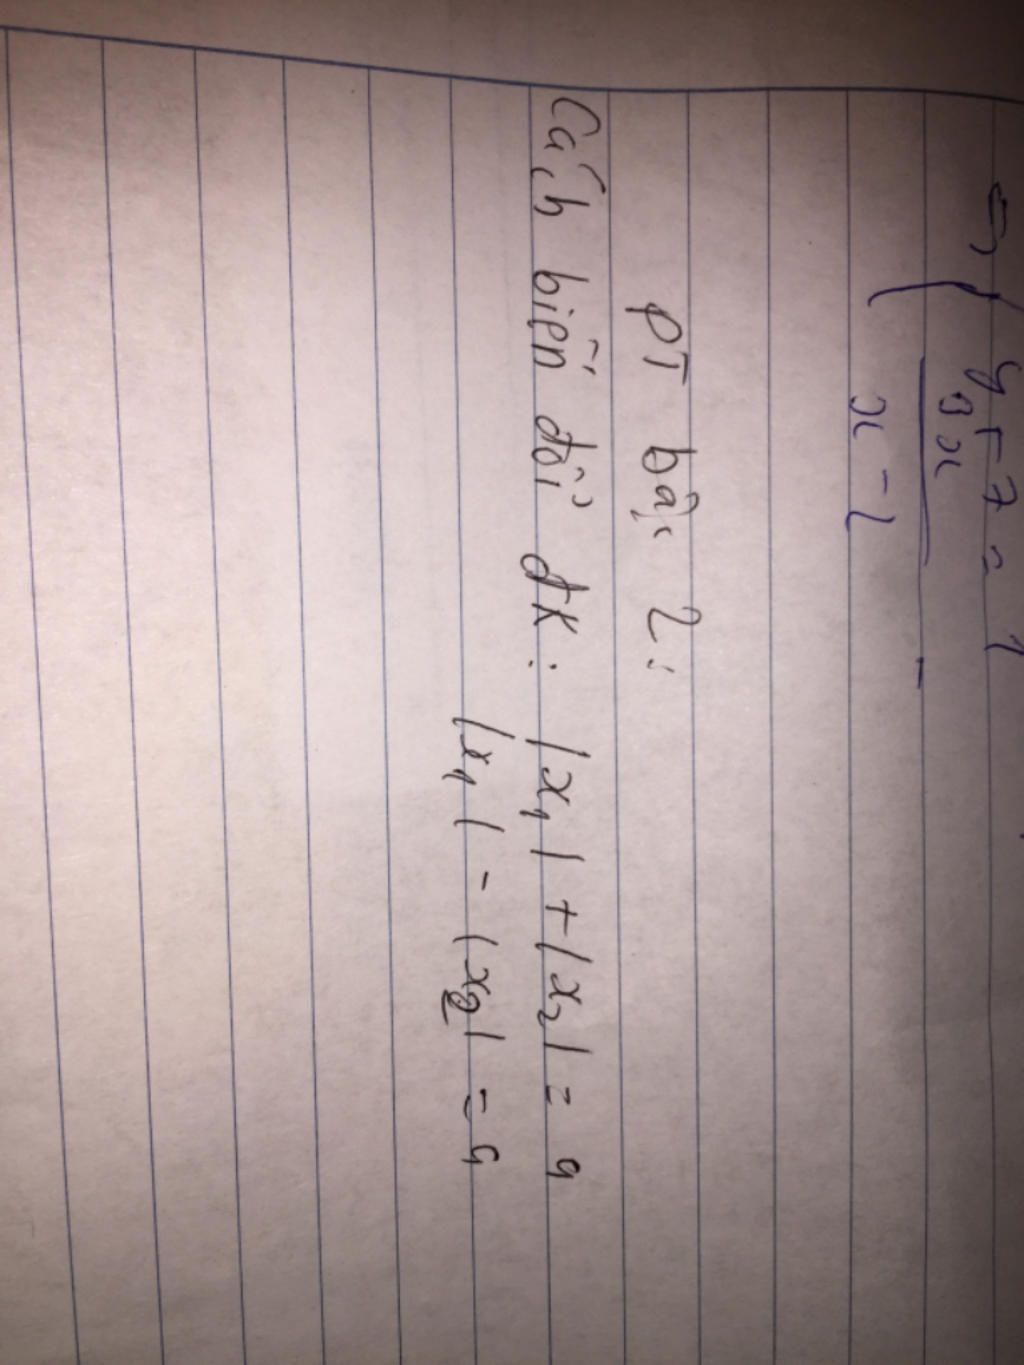 x - 2
PT bậc 2:
Cách biến đổi đk: |x₁| + |x₂| = 4
|x₁| - |x₂| = 4